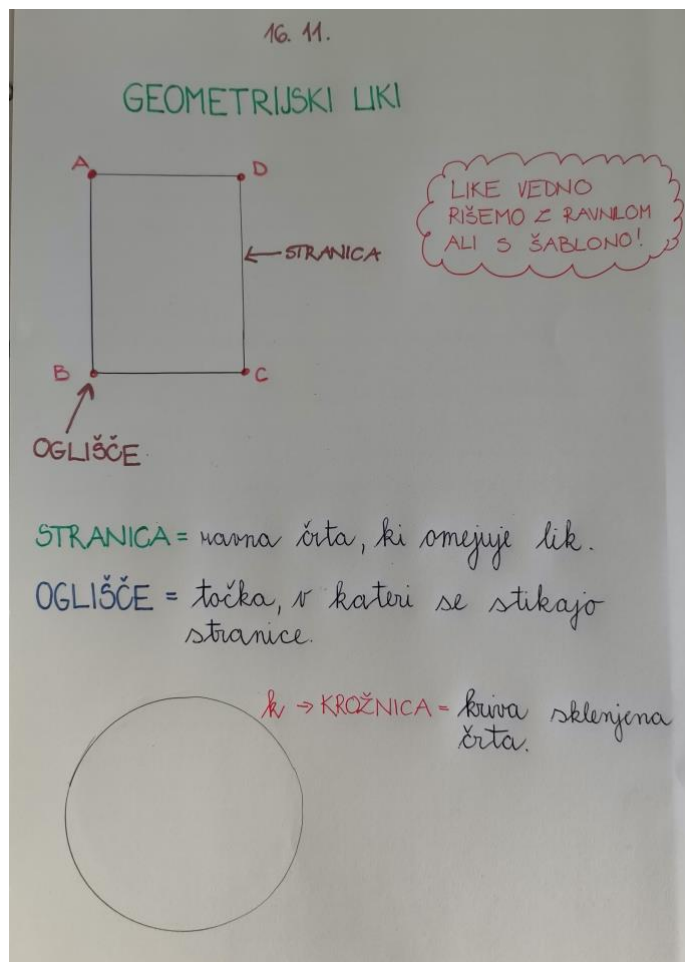 16. 11.
GEOMETRIJSKI LIKI
A
D
LIKE VEDNO
RIŠEMO Z RAVNILOM
ALI S ŠABLONO!
STRANICA
B
C
OGLIŠČE
STRANICA = ravna črta, ki omejuje lik.
OGLIŠČE = točka, v kateri se stikajo
stranice.
k → KROŽNICA = kriva sklenjena
črta.